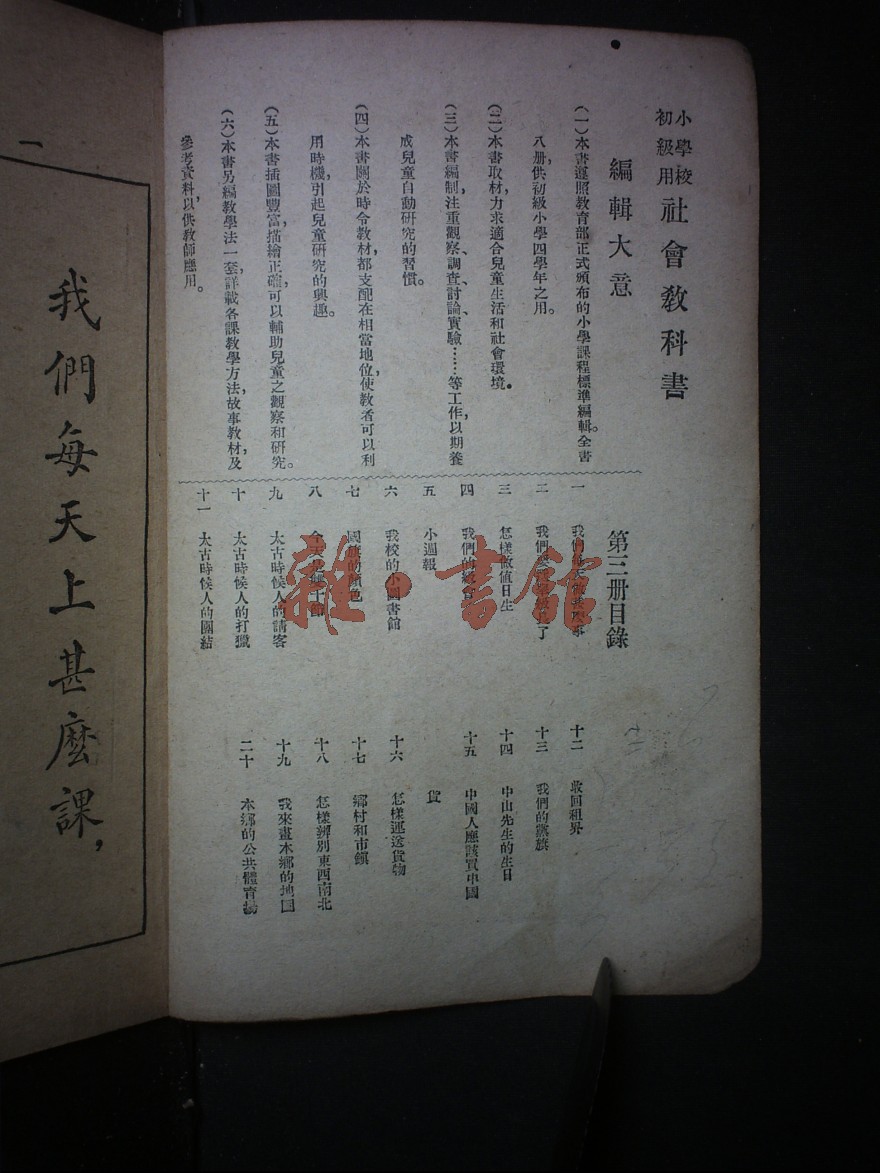 小學校初級用 社會教科書
編輯大意
(一)本書遵照教育部正式頒布的小學課程標準編輯。全書
八册,供初級小學四學年之用。
(二)本書取材,力求適合兒童生活和社會環境。
(三)本書編制,注重觀察、調查、討論、實驗……等工作,以期養
成兒童自動研究的習慣。
(四)本書關於時令教材,都支配在相當地位,使教者可以利
用時機,引起兒童研究的興趣。
(五)本書插圖豐富,描繪正確,可以輔助兒童之觀察和研究。
(六)本書另編教學法一套,詳載各課教學方法,故事教材,及
參考資料,以供教師應用。
第三册目錄
一 我們每天做甚麽事
二 我們了
三 怎樣做值日生
四 我們的級會
五 小週報
六 我校的小圖書館
七 國旗的顏色
八 今天是雙十節
九 太古時候人的請客
十 太古時候人的打獵
十一 太古時候人的團結
十二 收回租界
十三 我們的黨旗
十四 中山先生的生日
十五 中國人應該買中國
貨
十六 怎樣運送貨物
十七 鄉村和市鎮
十八 怎樣辨別東西南北
十九 我來畫本鄉的地圖
二十 本鄉的公共體育場
一
我們每天上甚麽課,
雜·書館